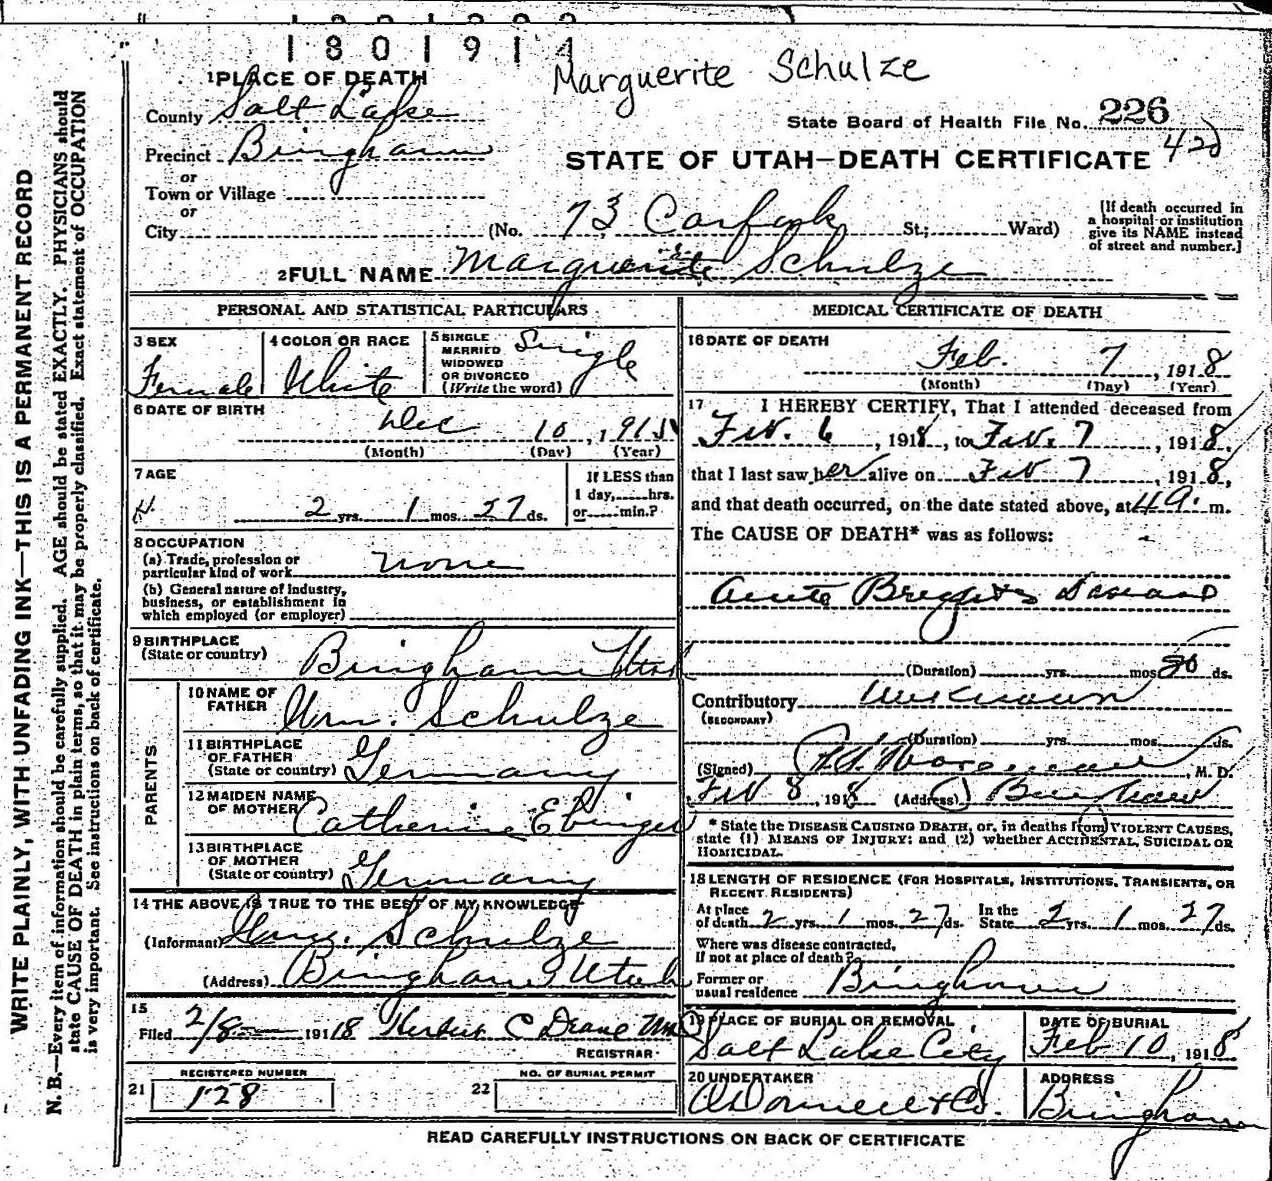 1801914
Marguerite Schulze
1 PLACE OF DEATH
County Salt Lake
State Board of Health File No. 226
Precinct Bingham
STATE OF UTAH—DEATH CERTIFICATE
or
Town or Village
or
City (No. 73 Carfork St.; Ward)
[If death occurred in
a hospital or institution
give its NAME instead
of street and number.]
2 FULL NAME Marguerite Schulze
WRITE PLAINLY, WITH UNFADING INK—THIS IS A PERMANENT RECORD
N. B.—Every item of information should be carefully supplied. AGE should be stated EXACTLY. PHYSICIANS should
state CAUSE OF DEATH in plain terms, so that it may be properly classified. Exact statement of OCCUPATION
is very important. See instructions on back of certificate.
PERSONAL AND STATISTICAL PARTICULARS
3 SEX
Female
4 COLOR OR RACE
White
5 SINGLE
MARRIED
WIDOWED
OR DIVORCED
(Write the word)
Single
6 DATE OF BIRTH
Dec 10, 1915
(Month) (Day) (Year)
7 AGE
2 yrs. 1 mos. 27 ds.
If LESS than
1 day, hrs.
or min.?
8 OCCUPATION
(a) Trade, profession or
particular kind of work none
(b) General nature of industry,
business, or establishment in
which employed (or employer)
9 BIRTHPLACE
(State or country) Bingham Utah
PARENTS
10 NAME OF
FATHER Wm. Schulze
11 BIRTHPLACE
OF FATHER
(State or country) Germany
12 MAIDEN NAME
OF MOTHER Catherine Ebinger
13 BIRTHPLACE
OF MOTHER
(State or country) Germany
14 THE ABOVE IS TRUE TO THE BEST OF MY KNOWLEDGE
(Informant) Wm. Schulze
(Address) Bingham Utah
15
Filed 2/8 1918 Herbert C Deane
REGISTRAR
REGISTERED NUMBER
21 128
NO. OF BURIAL PERMIT
22
MEDICAL CERTIFICATE OF DEATH
16 DATE OF DEATH
Feb. 7, 1918
(Month) (Day) (Year)
17 I HEREBY CERTIFY, That I attended deceased from
Feb. 6, 1918, to Feb. 7, 1918,
that I last saw her alive on Feb 7, 1918,
and that death occurred, on the date stated above, at 4 a. m.
The CAUSE OF DEATH* was as follows:
Acute Brights Disease
(Duration) yrs. mos. ds.
Contributory unknown
(SECONDARY)
(Duration) yrs. mos. ds.
(Signed) , M. D.
Feb 8, 1918 (Address) Bingham
* State the DISEASE CAUSING DEATH, or, in deaths from VIOLENT CAUSES,
state (1) MEANS OF INJURY; and (2) whether ACCIDENTAL, SUICIDAL OR
HOMICIDAL.
18 LENGTH OF RESIDENCE (FOR HOSPITALS, INSTITUTIONS, TRANSIENTS, OR
RECENT RESIDENTS)
At place
of death 2 yrs. 1 mos. 27 ds.
In the
State 2 yrs. 1 mos. 27 ds.
Where was disease contracted,
if not at place of death?
Former or
usual residence Bingham
19 PLACE OF BURIAL OR REMOVAL
Salt Lake City
DATE OF BURIAL
Feb 10, 1918
20 UNDERTAKER
O'Donnell & Co.
ADDRESS
Bingham
READ CAREFULLY INSTRUCTIONS ON BACK OF CERTIFICATE